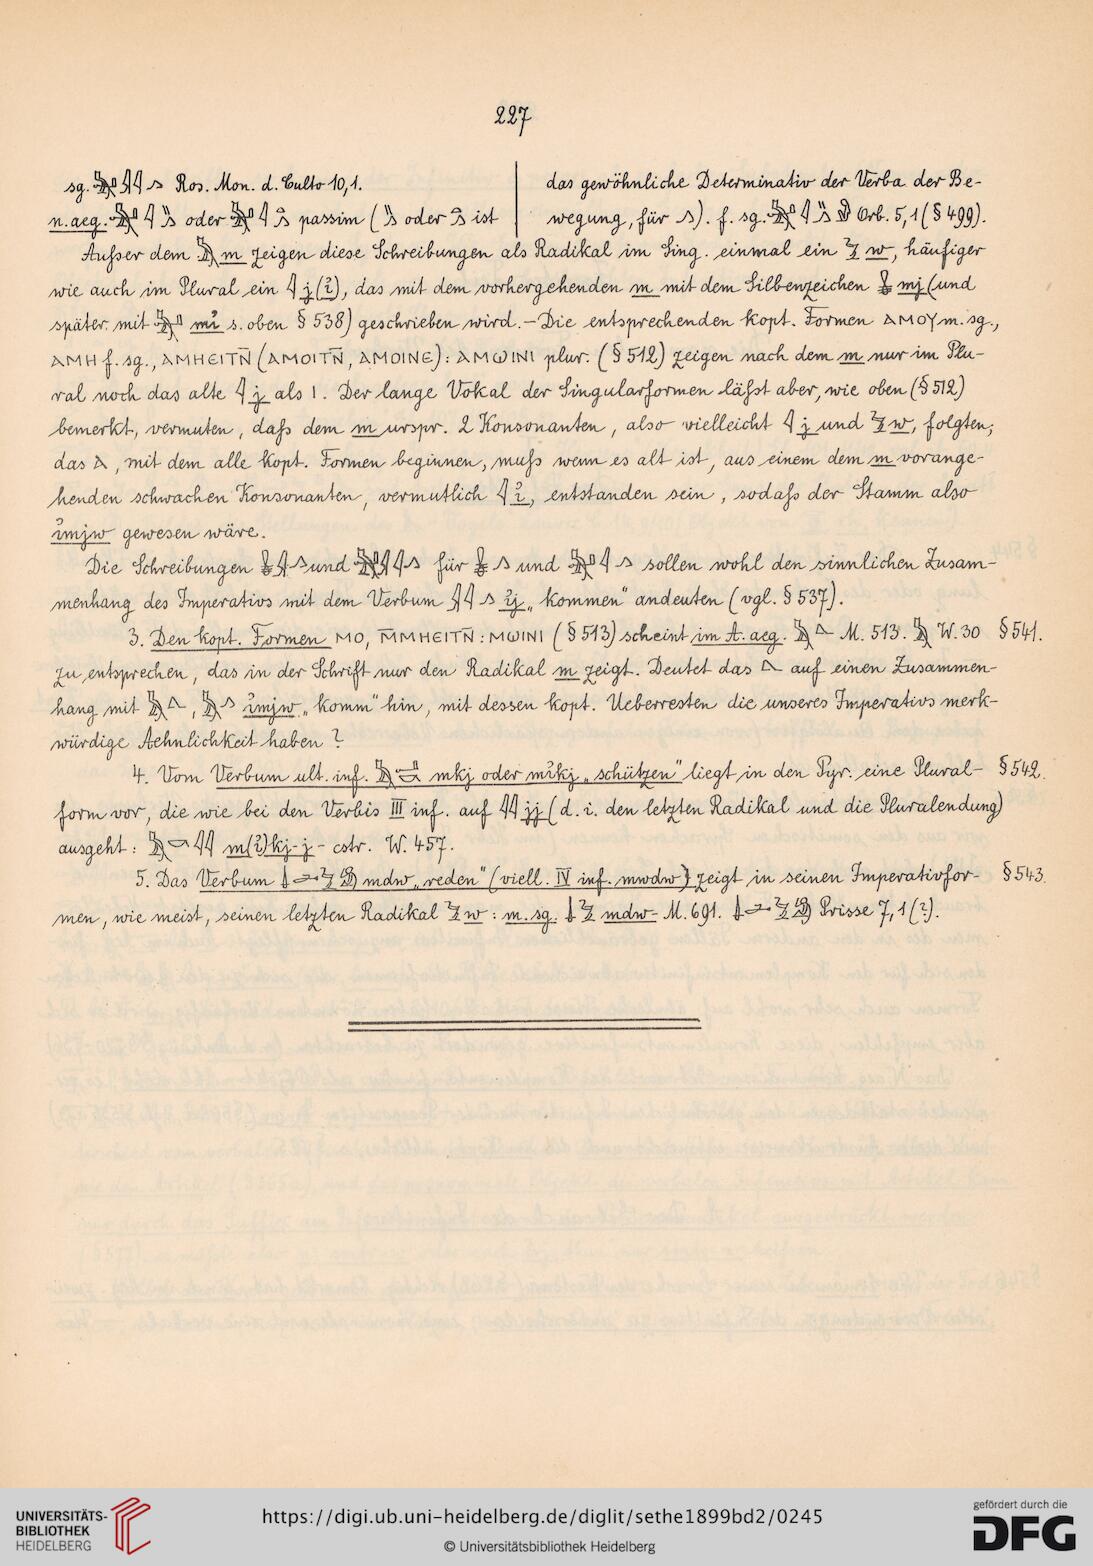 227
sg. 𓅓𓏇𓇋𓇋𓂻 Ros. Mon. d. Culto 10,1.
n. aeg. 𓇋 oder 𓇋 passim ( oder ist
das gewöhnliche Determinativ der Verba der Be-
wegung, für 𓂻). f. sg. 𓇋 Orb. 5,1 (§ 499).
Aufser dem 𓅓 m zeigen diese Schreibungen als Radikal im Sing. einmal ein w, häufiger
wie auch im Plural ein 𓇋 j (ỉ), das mit dem vorhergehenden m mit dem Silbenzeichen mj (und
später mit mỉ s. oben § 538) geschrieben wird. – Die entsprechenden kopt. Formen ⲀⲘⲞⲨ m. sg.,
ⲀⲘⲎ f. sg., ⲀⲘⲎⲈⲒⲦⲚ̄ (ⲀⲘⲞⲒⲦⲚ̄, ⲀⲘⲞⲒⲚⲈ) : ⲀⲘⲰⲒⲚⲒ plur. (§ 512) zeigen nach dem m nur im Plu-
ral noch das alte 𓇋 j als Ⲓ. Der lange Vokal der Singularformen läfst aber, wie oben (§ 512)
bemerkt, vermuten, dafs dem m urspr. 2 Konsonanten, also vielleicht 𓇋 j und w, folgten;
das Ⲁ, mit dem alle kopt. Formen beginnen, mufs wenn es alt ist, aus einem dem m vorange-
henden schwachen Konsonanten, vermutlich 𓇋 ỉ, entstanden sein, sodafs der Stamm also
ỉmjw gewesen wäre.
Die Schreibungen 𓇋𓂻 und 𓇋𓇋𓂻 für 𓂻 und 𓇋𓂻 sollen wohl den sinnlichen Zusam-
menhang des Imperativs mit dem Verbum 𓇋𓇋𓂻 ỉj „kommen" andeuten (vgl. § 537).
3. Den kopt. Formen ⲘⲞ, ⲘⲘⲎⲈⲒⲦⲚ̄ : ⲘⲰⲒⲚⲒ (§ 513) scheint im A. aeg. 𓅓 M. 513. 𓅓 W. 30 § 541.
zu entsprechen, das in der Schrift nur den Radikal m zeigt. Deutet das auf einen Zusammen-
hang mit 𓅓, 𓅓𓂻 ỉmjw „komm" hin, mit dessen kopt. Ueberresten die unseres Imperativs merk-
würdige Aehnlichkeit haben?
4. Vom Verbum ult. inf. 𓅓 mkj oder mỉkj „schützen" liegt in den Pyr. eine Plural- § 542.
form vor, die wie bei den Verbis III inf. auf 𓇋𓇋 jj (d. i. den letzten Radikal und die Pluralendung)
ausgeht: 𓅓𓎡𓇋𓇋 m(ỉ)kj-j- cstr. W. 457.
5. Das Verbum mdw „reden" (viell. IV inf. mwdw) zeigt in seinen Imperativfor- § 543.
men, wie meist, seinen letzten Radikal w : m. sg. mdw- M. 691. Prisse 7,1 (?).
UNIVERSITÄTS-
BIBLIOTHEK
HEIDELBERG
https://digi.ub.uni-heidelberg.de/diglit/sethe1899bd2/0245
© Universitätsbibliothek Heidelberg
gefördert durch die
DFG